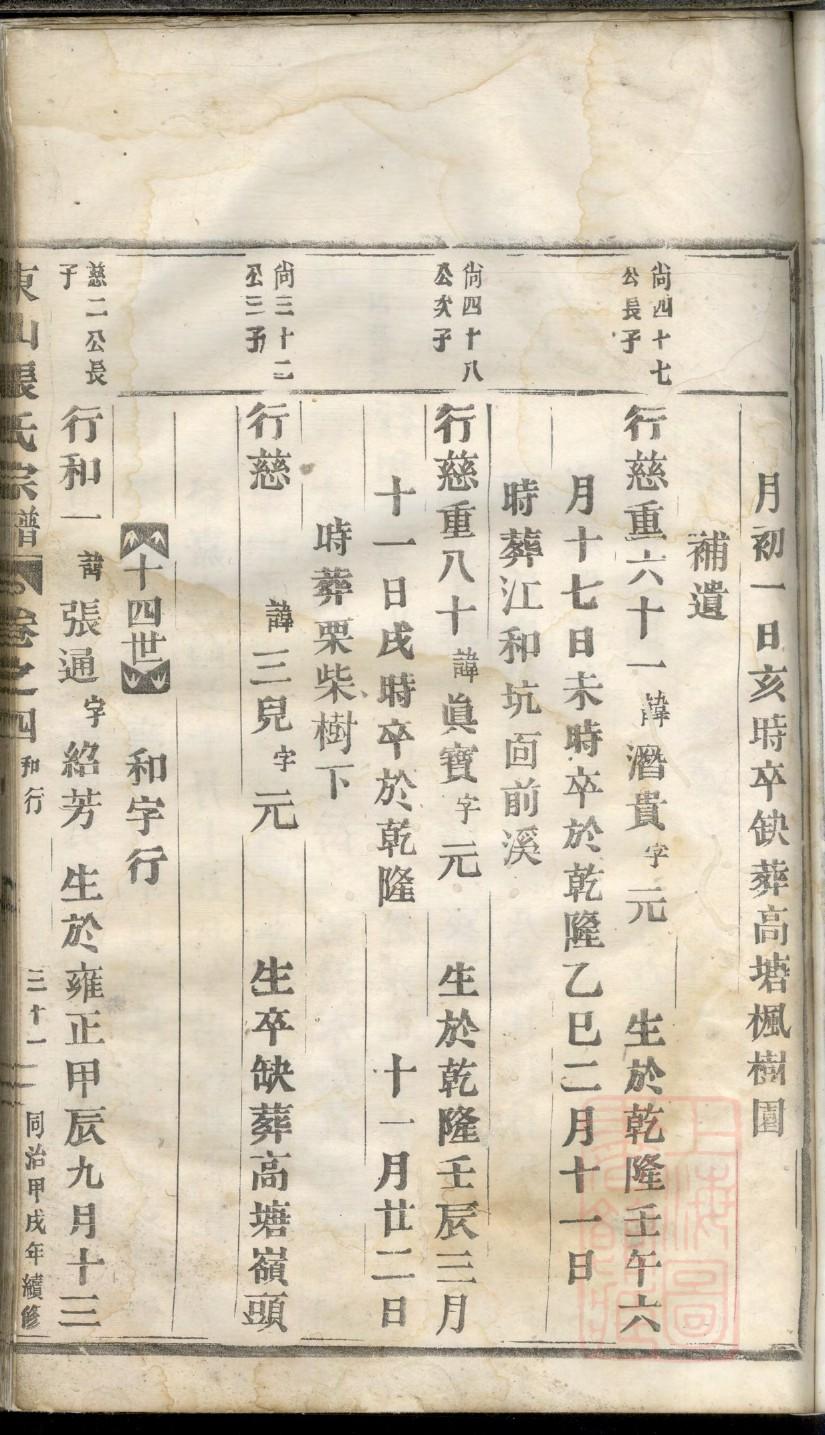 月初一日亥時卒缺葬高塘楓樹園
補遺
尙四十七
公長子
行慈重六十一諱潛貴字元 生於乾隆壬午六
月十七日未時卒於乾隆乙巳二月十一日
時葬江和坑面前溪
尙四十八
公次子
行慈重八十諱眞寶字元 生於乾隆壬辰三月
十一日戌時卒於乾隆 十一月廿二日
時葬栗柴樹下
尙三十二
公三子
行慈 諱三兒字元 生卒缺葬高塘嶺頭
十四世 和字行
慈二公長
子
行和一諱張通字紹芳 生於雍正甲辰九月十三
東山張氏宗譜 卷之四 和行 三十一 同治甲戌年續修
上海圖